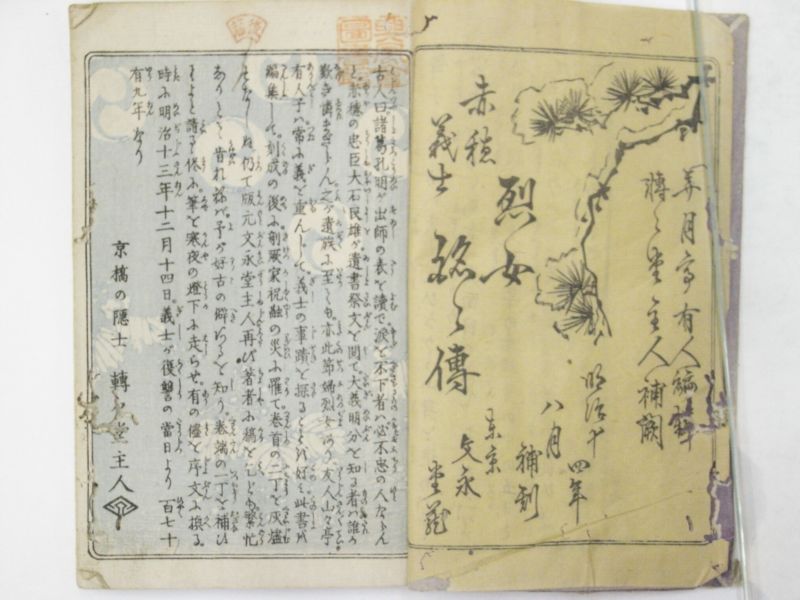 弄月亭有人編輯
轉々堂主人補闕
烈女
赤穂
義士
銘々傳
明治十四年
八月補刻
東京
文永堂藏
古人曰諸葛孔明が出師の表を讀で涙を不下者ハ必不忠の人ならん
と赤穂の忠臣大石良雄が遺書祭文を閲て大義明分を知る者ハ誰か
歎き
遺族に至るも亦此節婦烈女あり友人山々亭
有人子ハ常に義を重んじて義士の事蹟を探ることを好ミ此書を
編集して刻成の後に剞劂家祝融の災に罹て巻首の二丁を灰燼
仍て版元文永堂主人再び著者に稿を乞ども繁忙
昔れ
予が好古の癖あるを知り巻端の一丁を補ひ
諸
筆を寒夜の燈下に走らせ有の儘を序文に換る
時に明治十三年十二月十四日義士が復讐の當日より百七十
有九年なり
京橋の隠士 轉々堂主人